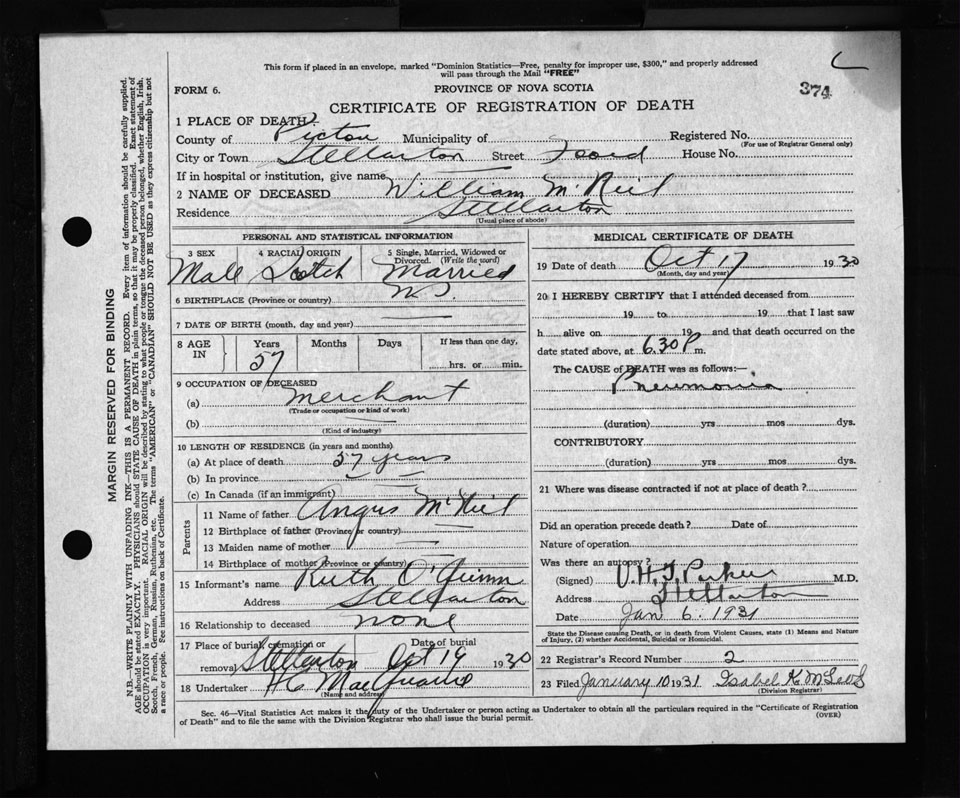 This form if placed in an envelope, marked "Dominion Statistics—Free, penalty for improper use, $300," and properly addressed
will pass through the Mail "FREE"
FORM 6.
PROVINCE OF NOVA SCOTIA
374
CERTIFICATE OF REGISTRATION OF DEATH
1 PLACE OF DEATH:
County of Pictou Municipality of Registered No.
(For use of Registrar General only)
City or Town Stellarton Street Foord House No.
If in hospital or institution, give name
2 NAME OF DECEASED William McNeil
Residence Stellarton
(Usual place of abode)
PERSONAL AND STATISTICAL INFORMATION
3 SEX 4 RACIAL ORIGIN 5 Single, Married, Widowed or Divorced. (Write the word)
Male Scotch Married
6 BIRTHPLACE (Province or country) N.S.
7 DATE OF BIRTH (month, day and year)
8 AGE IN Years Months Days If less than one day,
57 hrs. or min.
9 OCCUPATION OF DECEASED
(a) Merchant
(Trade or occupation or kind of work)
(b)
(Kind of industry)
10 LENGTH OF RESIDENCE (in years and months)
(a) At place of death 57 years
(b) In province
(c) In Canada (if an immigrant)
Parents
11 Name of father Angus McNeil
12 Birthplace of father (Province or country)
13 Maiden name of mother
14 Birthplace of mother (Province or country)
15 Informant's name Ruth O'Quinn
Address Stellarton
16 Relationship to deceased none
17 Place of burial, cremation or removal Stellarton Date of burial Oct 19 1930
18 Undertaker H C MacQuarrie
(Name and address)
MEDICAL CERTIFICATE OF DEATH
19 Date of death Oct 17 1930
(Month, day and year)
20 I HEREBY CERTIFY that I attended deceased from
19 to 19 that I last saw
h alive on 19 and that death occurred on the
date stated above, at 6.30 P m.
The CAUSE of DEATH was as follows:—
Pneumonia
(duration) yrs mos dys.
CONTRIBUTORY
(duration) yrs mos dys.
21 Where was disease contracted if not at place of death?
Did an operation precede death? Date of
Nature of operation
Was there an autopsy?
(Signed) Parker M.D.
Address Stellarton
Date Jan 6. 1931
State the Disease causing Death, or in death from Violent Causes, state (1) Means and Nature
of Injury, (2) whether Accidental, Suicidal or Homicidal.
22 Registrar's Record Number 2
23 Filed January 10 1931 Isabel K.
(Division Registrar)
Sec. 46—Vital Statistics Act makes it the duty of the Undertaker or person acting as Undertaker to obtain all the particulars required in the "Certificate of Registration
of Death" and to file the same with the Division Registrar who shall issue the burial permit.
(OVER)
MARGIN RESERVED FOR BINDING
N.B.—WRITE PLAINLY WITH UNFADING INK—THIS IS A PERMANENT RECORD. Every item of information should be carefully supplied.
AGE should be stated EXACTLY. PHYSICIANS should STATE CAUSE OF DEATH in plain terms, so that it may be properly classified. Exact statement of
OCCUPATION is very important. RACIAL ORIGIN will be described by stating to what people or tongue the deceased person belonged, whether English, Irish,
Scotch, French, German, Russian, Ruthenian, etc. The terms "AMERICAN" or "CANADIAN" SHOULD NOT BE USED as they express citizenship but not
a race or people. See instructions on back of Certificate.